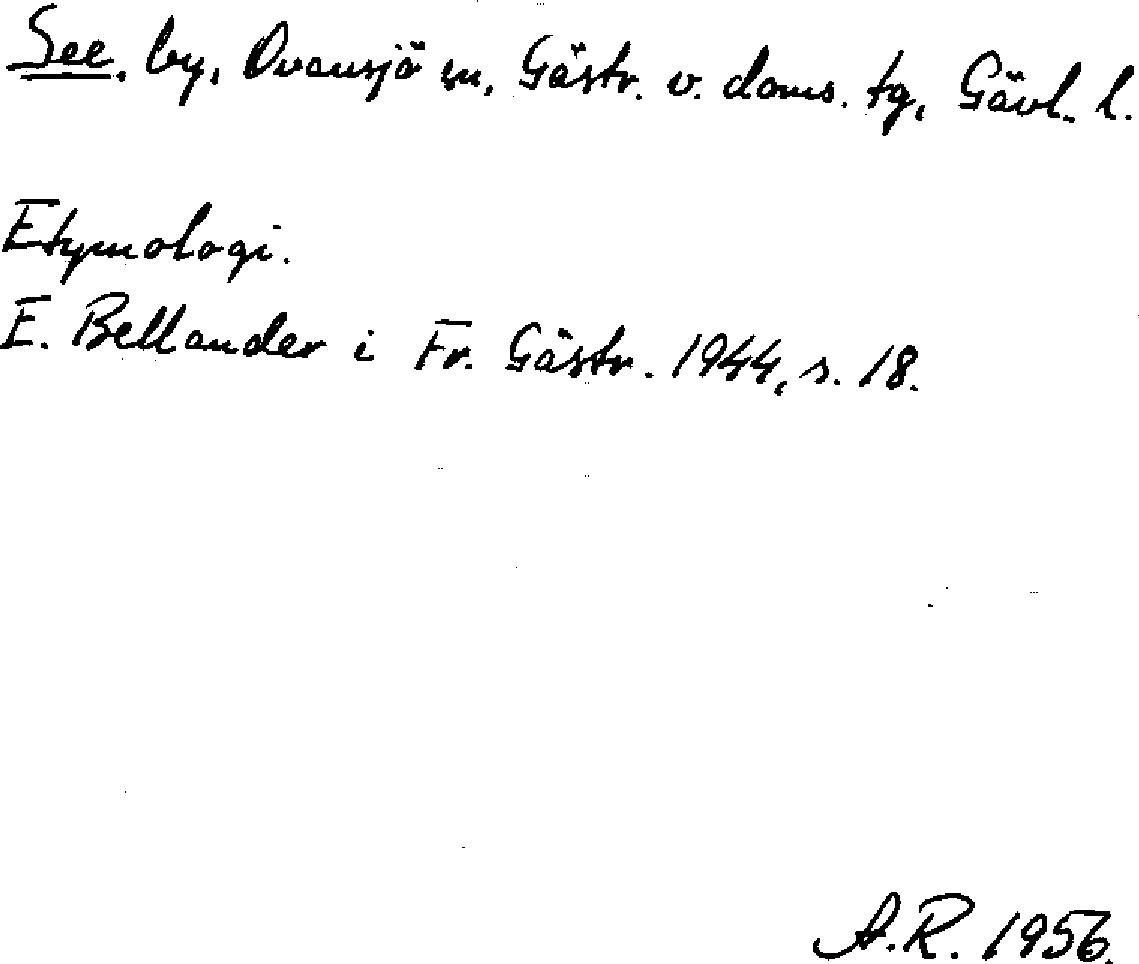 See, by, Ovansjö sn, Gästr. v. doms. tg, Gävl. l.
Etymologi.
E. Bellander i Fr. Gästr. 1944, s. 18.
A.R. 1956.